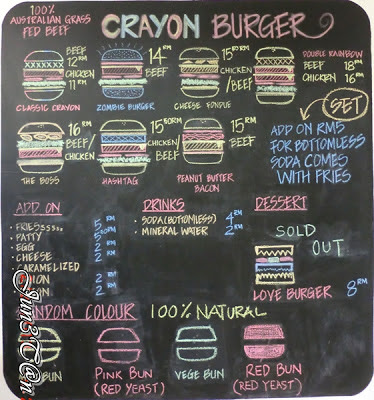 100%
AUSTRALIAN GRASS
FED BEEF
CRAYON BURGER
BEEF
12 RM
CHICKEN
11 RM
CLASSIC CRAYON
14 RM
BEEF
ZOMBIE BURGER
15.50 RM
CHICKEN
/BEEF
CHEESE FONDUE
DOUBLE RAINBOW
BEEF 18 RM
CHICKEN 16 RM
SET
ADD ON RM5
FOR BOTTOMLESS
SODA COMES
WITH FRIES
16 RM
BEEF/
CHICKEN
THE BOSS
15.50 RM
CHICKEN/
BEEF
HASHTAG
15 RM
BEEF
PEANUT BUTTER
BACON
ADD ON
• FRIESSSSS.. 5 RM
• PATTY 5.50 RM
• EGG 2 RM
• CHEESE 2
• CARAMELIZED
ONION 2 RM
2 RM
DRINKS
• SODA (BOTTOMLESS) 4 RM
• MINERAL WATER 2 RM
DESSERT
SOLD
OUT
LOVE BURGER 8 RM
RANDOM COLOUR 100% NATURAL
BUN
PINK BUN
(RED YEAST)
VEGE BUN
RED BUN
(RED YEAST)